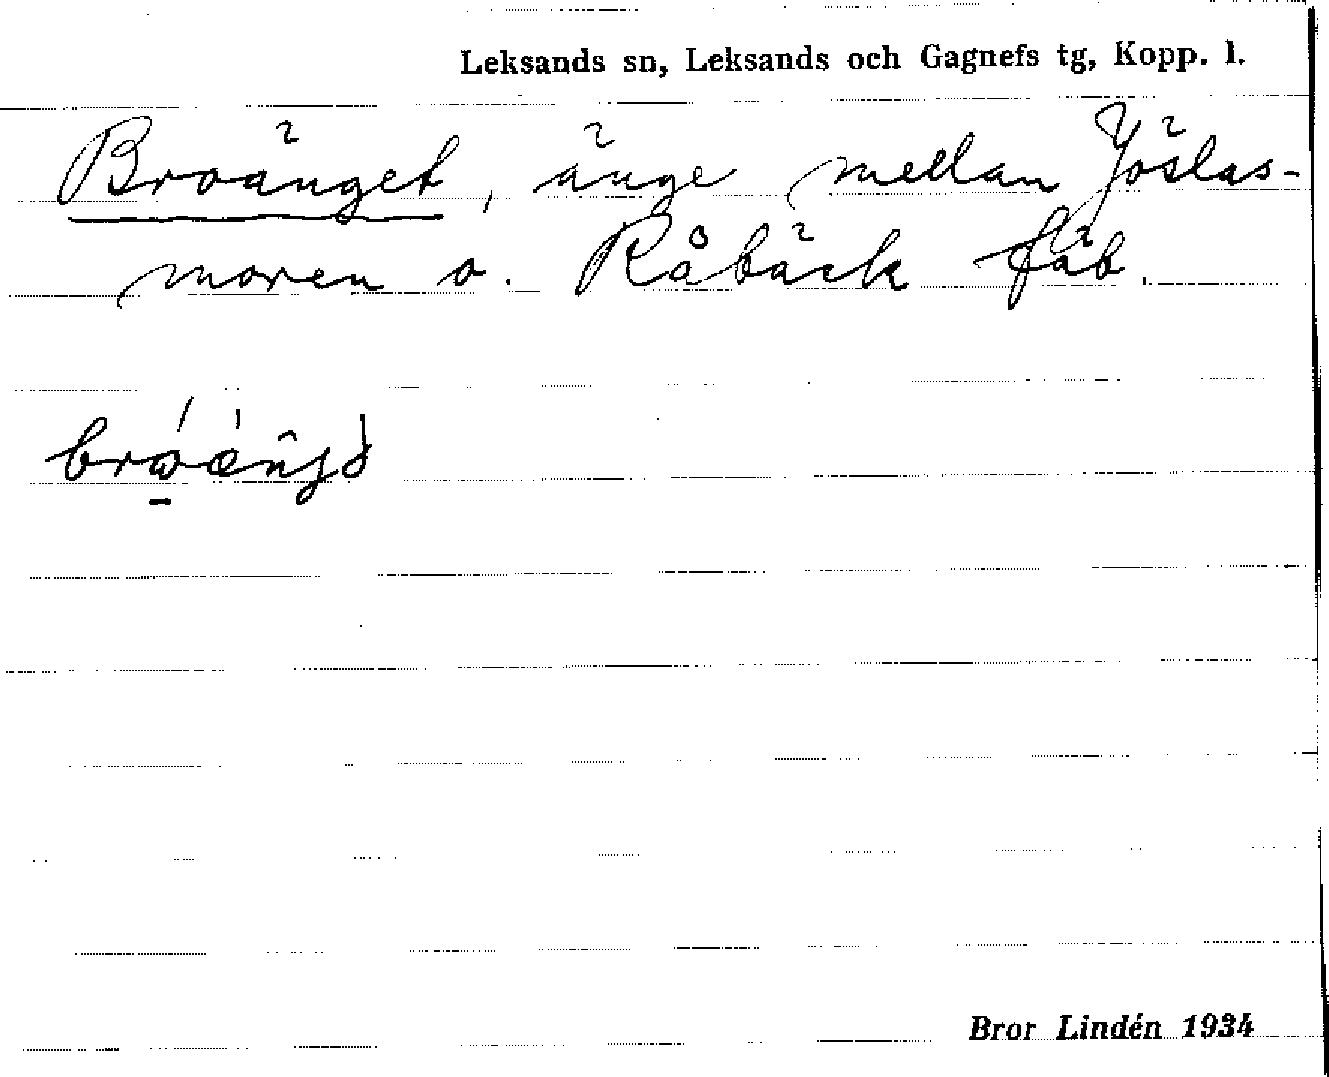 Leksands sn, Leksands och Gagnefs tg, Kopp. l.
Broänget, änge mellan Jöslas-
moren o. Råbäck fäb.
Bror Lindén 1934